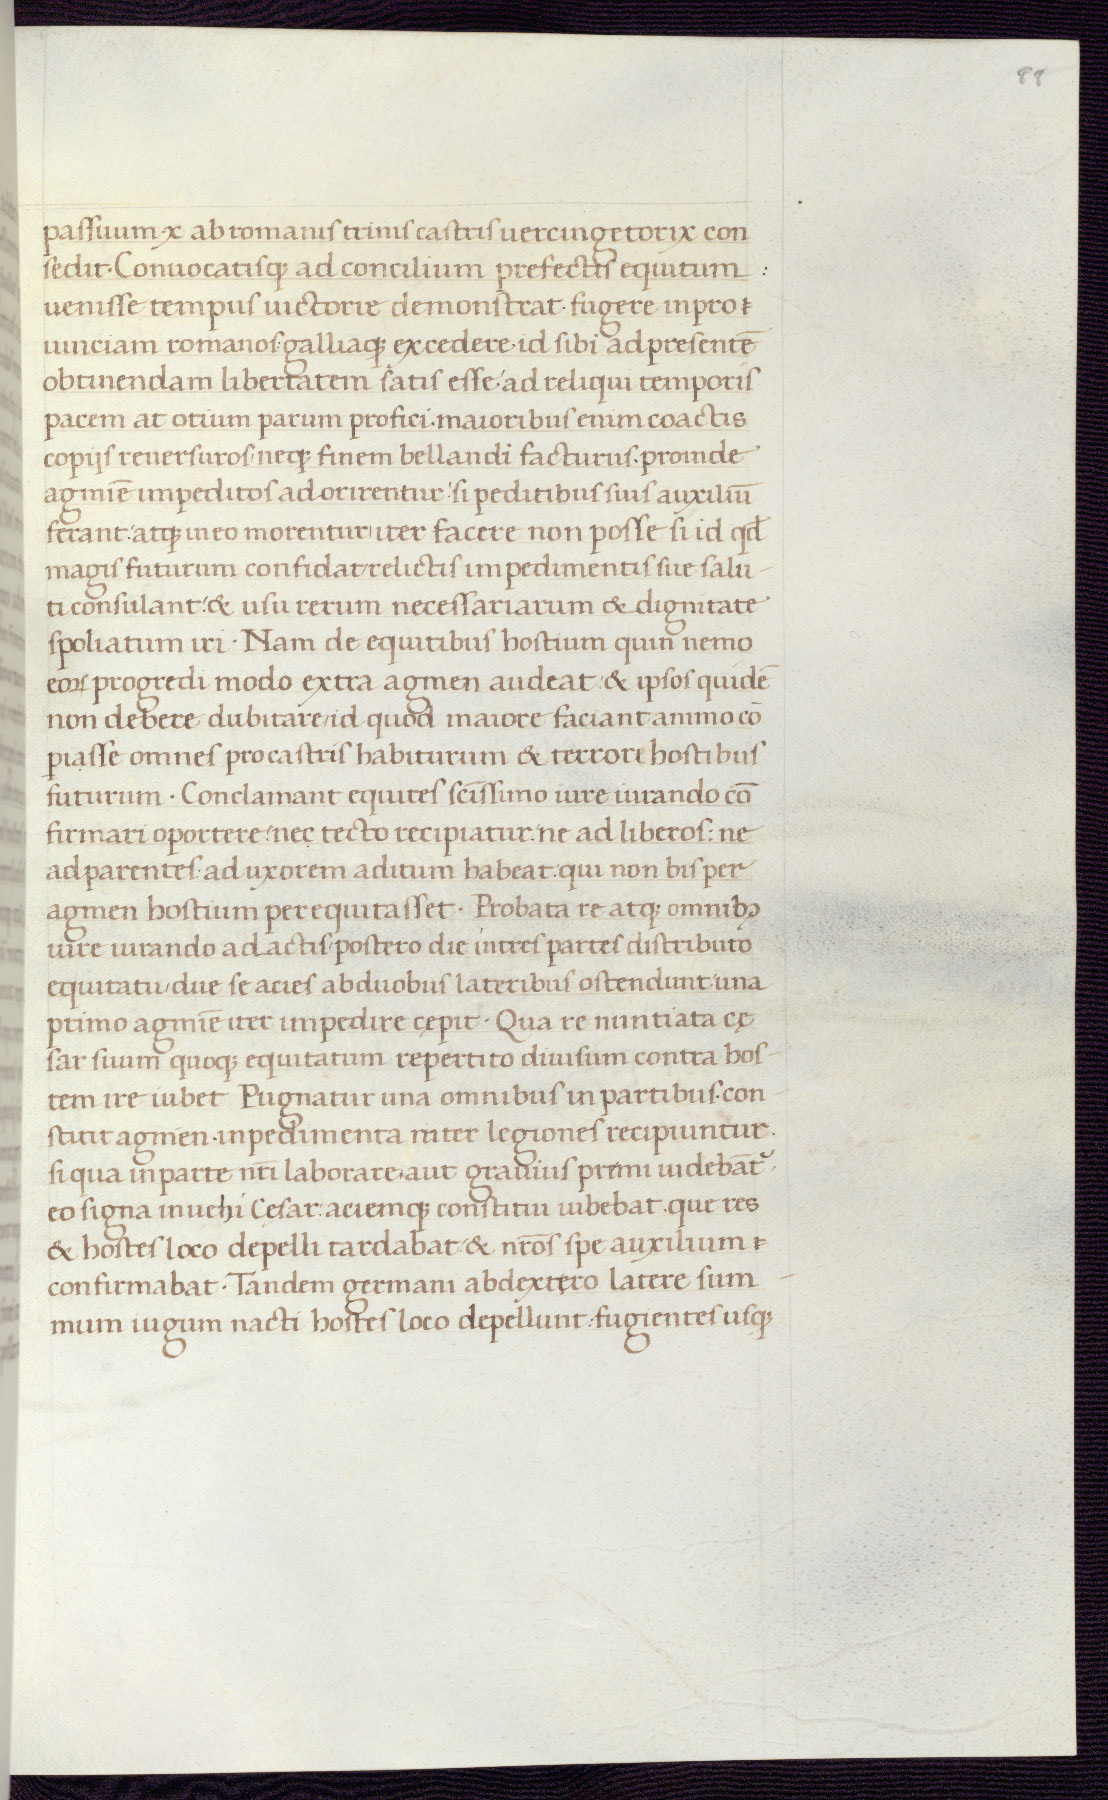 88
passuum·x ab romanis trinis castris uercingetorix con
sedit·Conuocatisq; ad concilium prefectis equitum
uenisse tempus uictorie demonstrat· fugere inpro
uinciam romanos·galliaq; excedere·id sibi ad presentē
obtinendam libertatem satis esse·ad reliqui temporis
pacem at otium parum profici·maioribus enim coactis
copijs reuersuros·neq; finem bellandi facturus·proinde
agmīe impeditos adorirentur·si peditibus suis auxiliū
ferant·atq; in eo morentur iter facere non posse si id qd̄
magis futurum confidat relictis impedimentis sue salu-
ti consulant·& usu rerum necessariarum & dignitate
spoliatum iri· Nam de equitibus hostium quin nemo
eoꝝ progredi modo extra agmen audeat·& ipsos quidē
non debere dubitare id quod maiore faciant animo cō
piasse omnes procastris habiturum & terrori hostibus
futurum· Conclamant equites scīssimo iure iurando cō
firmari oportere·nec tecto recipiatur·ne ad liberos: ne
ad parentes·ad uxorem aditum habeat·qui non bis per
agmen hostium perequitasset· Probata re atq; omnibꝫ
iure iurando adactis·postero die intres partes distributo
equitatu·due se acies abduobus lateribus ostendunt·una
primo agmīe iter impedire cępit· Qua re nuntiata cę
sar suum quoq; equitatum repertito diuisum contra hos-
tem ire iubet Pugnatur una omnibus in partibus·con-
stitit agmen·inpedimenta inter legiones recipiuntur·
si qua in parte nr̄i laborare·aut grauius premi uidebāt᷒·
eo signa inuehi Cesar·aciemq; constitui iubebat·que res
& hostes loco depelli tardabat & nr̄os spe auxilium
confirmabat· Tandem germani abdextero latere sum-
mum iugum nacti hostes loco depellunt·fugientes usq;